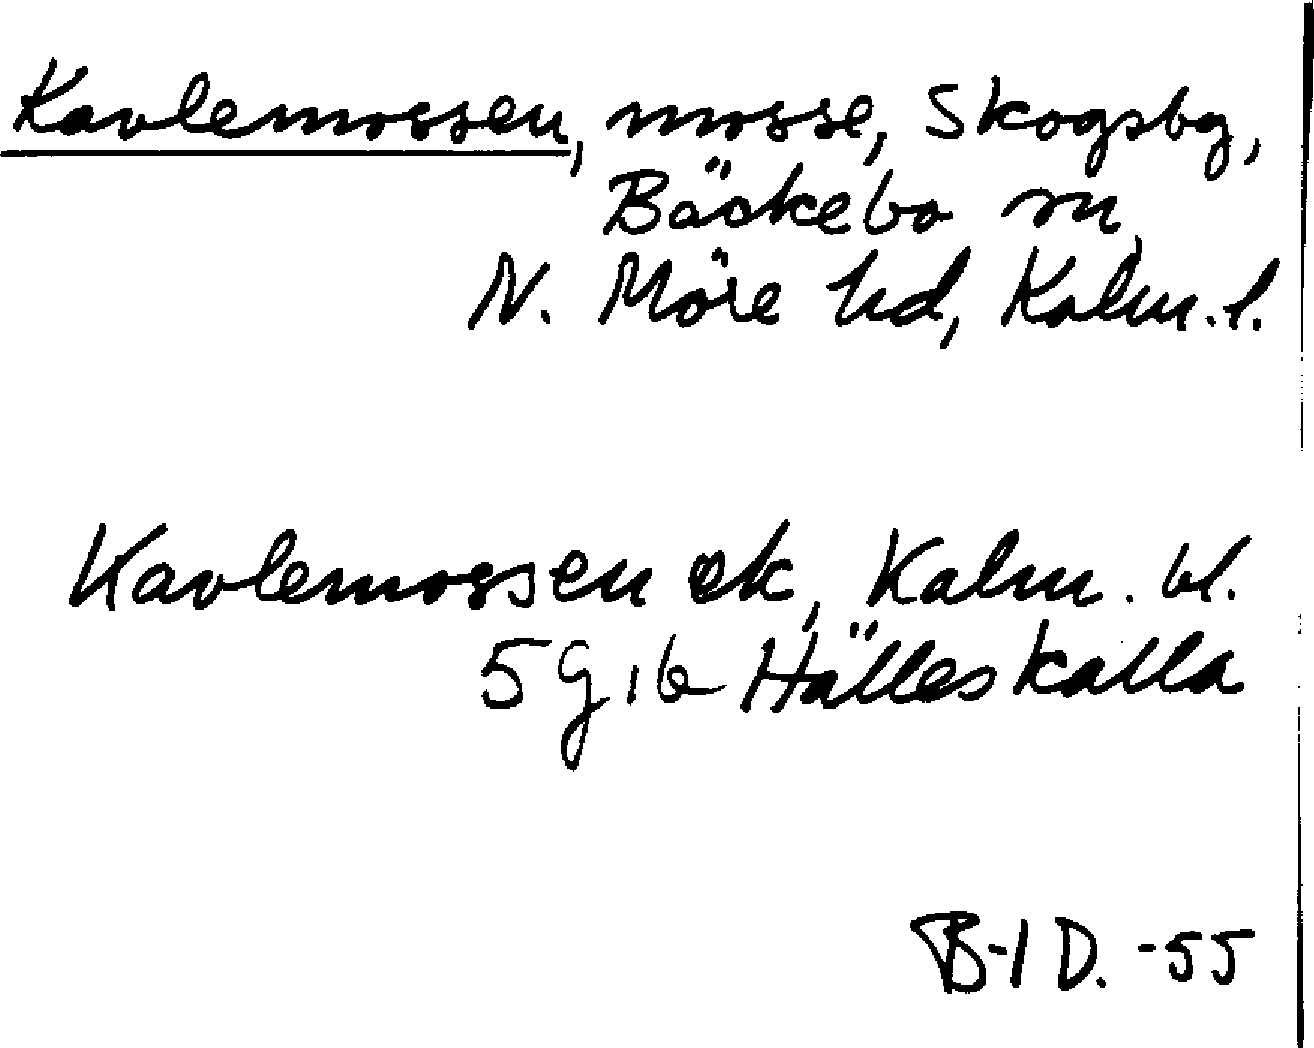 Kavlemossen, mosse, Skogsby,
Bäckebo sn,
N. Möre hd, Kalm. l.
Kavlemossen ek, Kalm. bl.
5 G 1b Hälleskalla
B-I D. -55